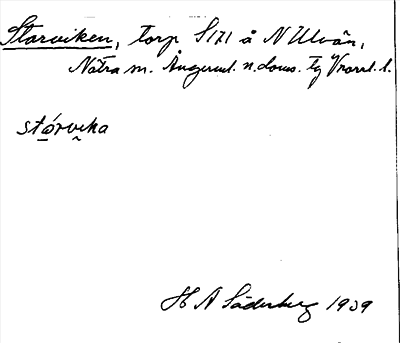 Storviken, torp S171 å N Ulvön,
Nätra sn. Ångerml. n. doms. tg Vnorrl. l.
stórvika
H A Söderberg 1939